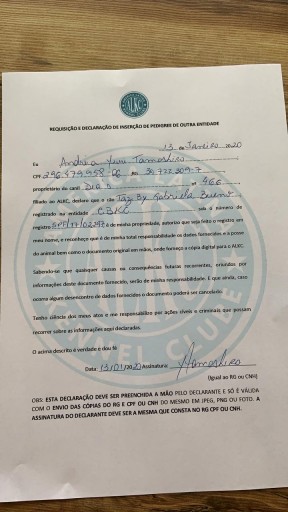 ALKC
REQUISIÇÃO E DECLARAÇÃO DE INSERÇÃO DE PEDIGREE DE OUTRA ENTIDADE
13 de Janeiro de 2020
Eu Andréa Yumi Tamashiro
CPF
proprietário do canil nº 466
filiado ao ALKC, declaro que o cão By Gabriela Bueno
registrado na entidade CBKC sob o número de
registro de minha propriedade, autorizo que seja feito o registro em
meu nome, e reconheço que é de minha total responsabilidade os dados fornecidos e a posse
do animal bem como o documento original em mãos, onde forneço a cópia digital para o ALKC.
Sabendo-se que quaisquer causas ou consequências futuras recorrentes, oriundos por
informações deste documento fornecido, serão de minha responsabilidade. E que ainda, caso
ocorra algum desencontro de dados fornecidos o documento poderá ser cancelado.
Tenho ciência dos meus atos e me responsabilizo por ações cíveis e criminais que possam
recorrer sobre as informações aqui declaradas.
O acima descrito é verdade e dou fé
Data: 13/01/2020 Assinatura: Tamashiro
(Igual ao RG ou CNH)
OBS: ESTA DECLARAÇÃO DEVE SER PREENCHIDA A MÃO PELO DECLARANTE E SÓ É VÁLIDA
COM O ENVIO DAS CÓPIAS DO RG E CPF OU CNH DO MESMO EM JPEG, PNG OU FOTO. A
ASSINATURA DO DECLARANTE DEVE SER A MESMA QUE CONSTA NO RG CPF OU CNH.